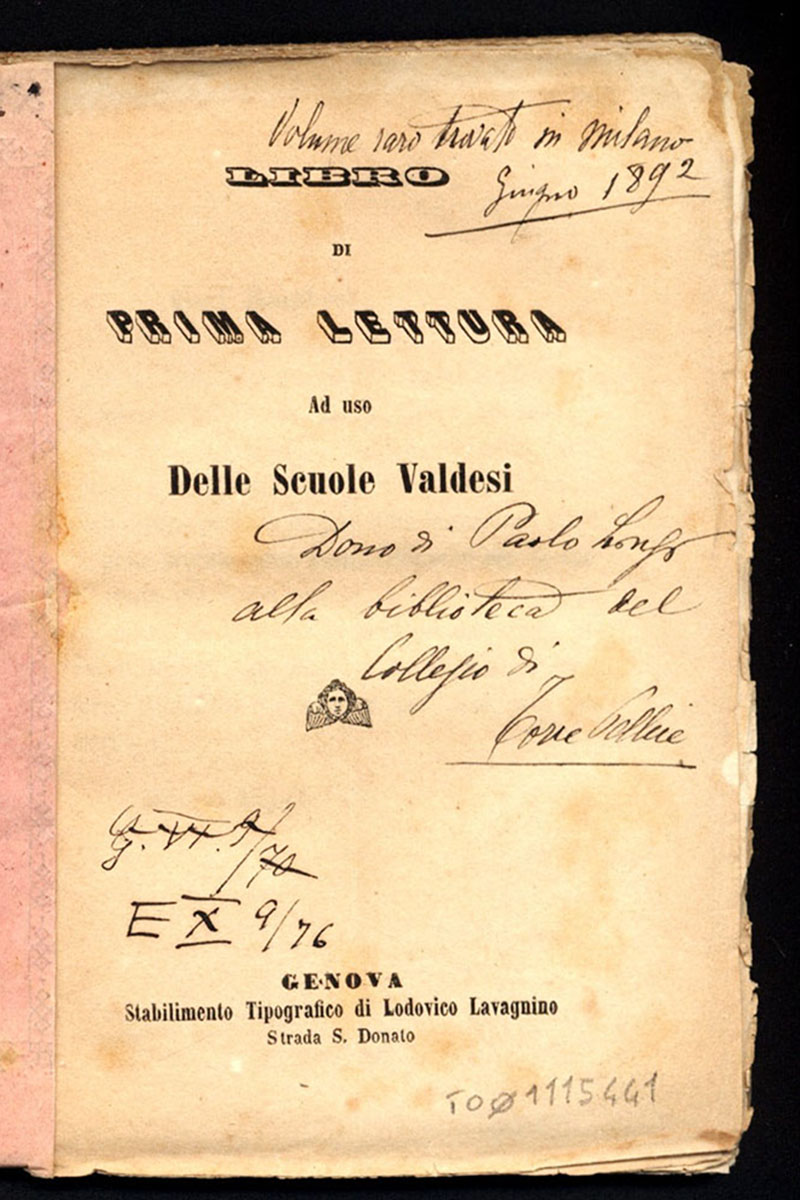 Volume raro trovato in Milano
Giugno 1892
LIBRO
DI
PRIMA LETTURA
Ad uso
Delle Scuole Valdesi
Dono di Paolo Longo
alla biblioteca del
Collegio di
Torre Pellice
G. VI. 9/70
E X 9/76
GENOVA
Stabilimento Tipografico di Lodovico Lavagnino
Strada S. Donato
TO01115441